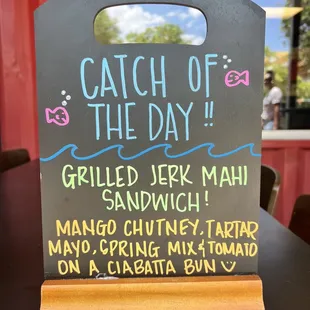 CATCH OF
THE DAY!!
GRILLED JERK MAHI
SANDWICH!
MANGO CHUTNEY, TARTAR
MAYO, CPRING MIX & TOMATO
ON A CIABATTA BUN